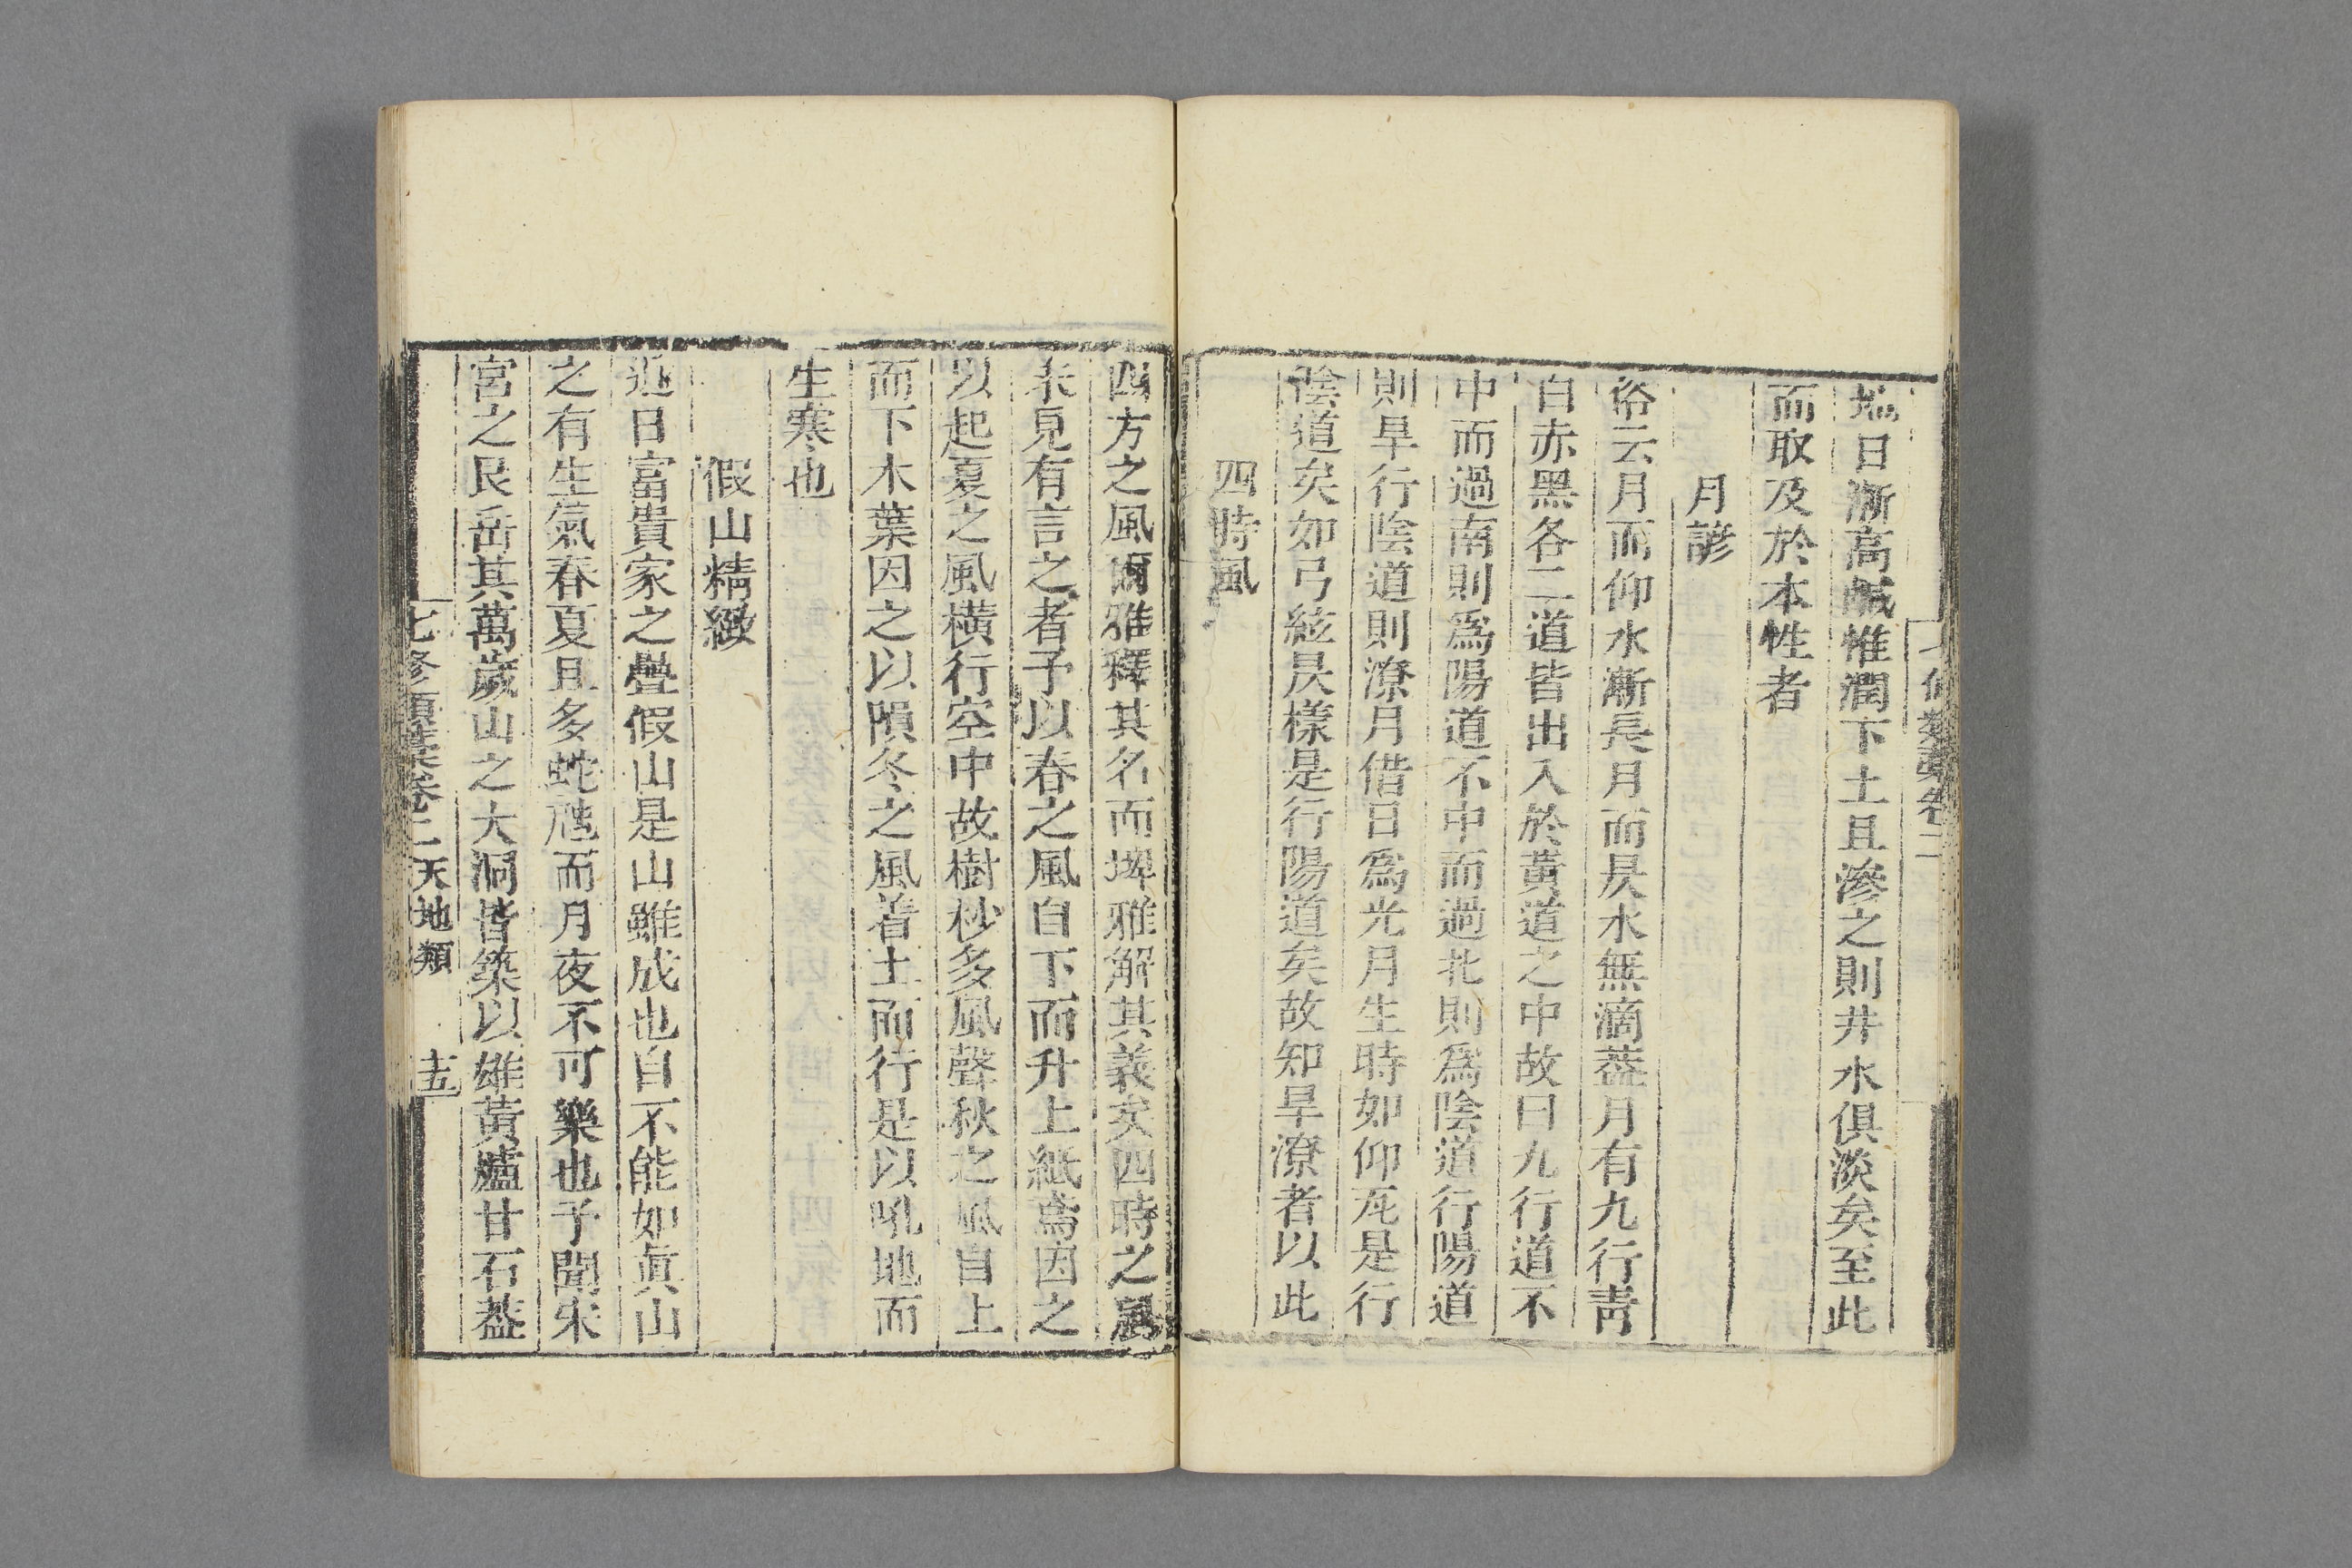 七修類藁卷二
地日漸高鹹惟潤下土且滲之則井水俱淡矣至此
而取及於本性者
月諺
俗云月而仰水漸長月而昃水無滴葢月有九行靑
白赤黑各二道皆出入於黃道之中故曰九行道不
中而過南則爲陽道不中而過北則爲陰道行陽道
則旱行陰道則潦月借日爲光月生時如仰瓦是行
陰道矣如弓絃昃樣是行陽道矣故知旱潦者以此
四時風
四方之風爾雅釋其名而埤雅解其義矣四時之風
未見有言之者予以春之風自下而升上紙鳶因之
以起夏之風橫行空中故樹杪多風聲秋之風自上
而下木葉因之以隕冬之風着土而行是以吼地而
生寒也
假山精緻
近日富貴家之疊假山是山雖成也自不能如眞山
之有生氣春夏且多蛇虺而月夜不可樂也予聞宋
宮之艮岳其萬歲山之大洞皆築以雄黃爐甘石葢
七修類藁卷二天地類 十五